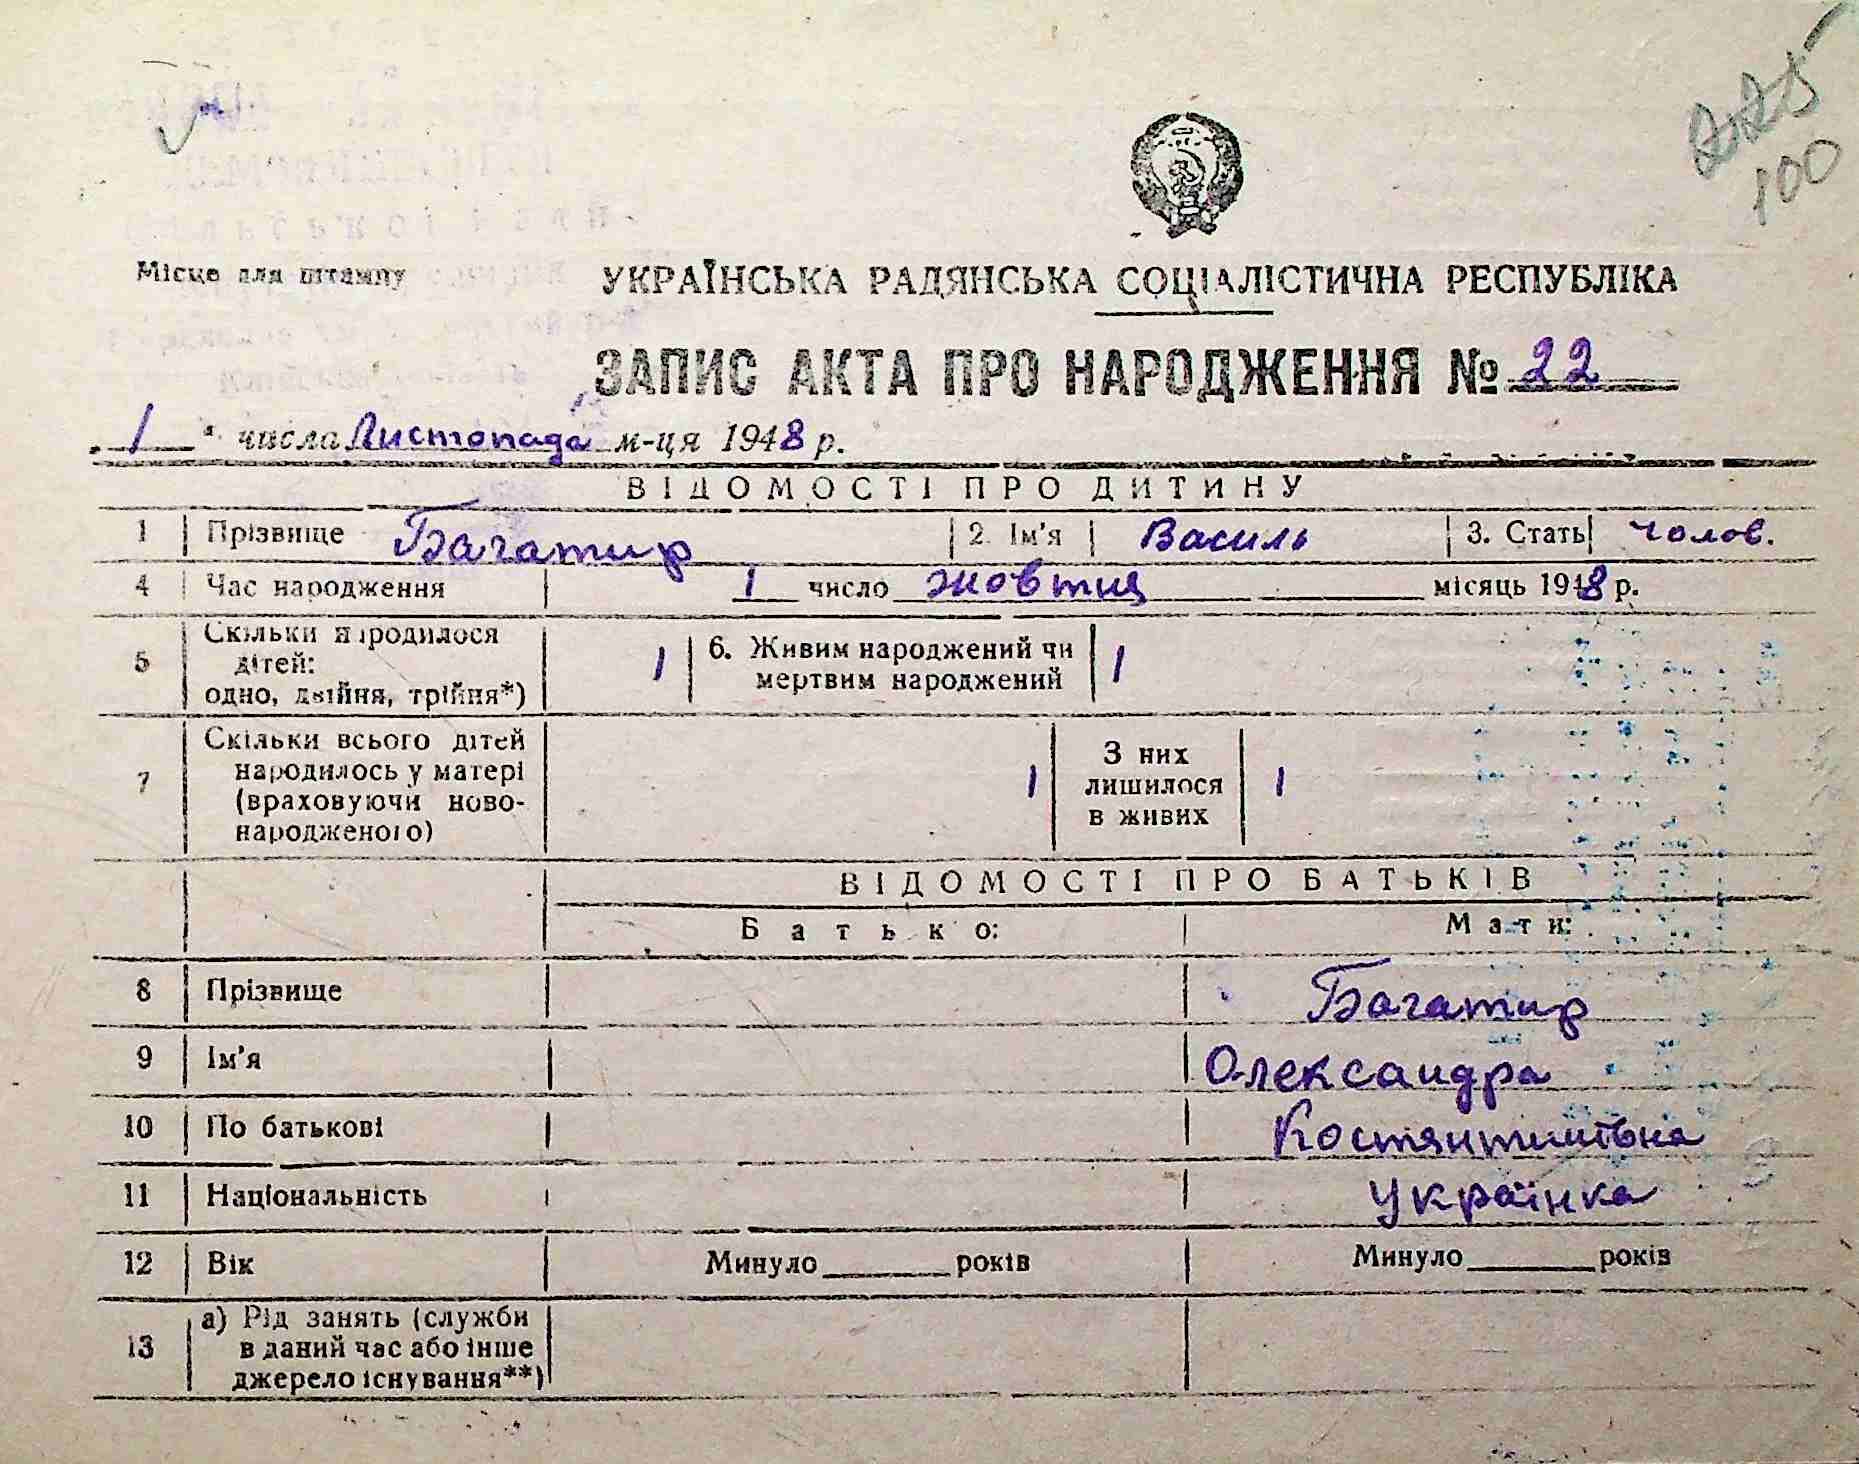 225
100
Місце для штампу
УКРАЇНСЬКА РАДЯНСЬКА СОЦІАЛІСТИЧНА РЕСПУБЛІКА
ЗАПИС АКТА ПРО НАРОДЖЕННЯ № 22
„1“ числа Листопада м-ця 1948 р.
ВІДОМОСТІ ПРО ДИТИНУ
1 Прізвище Багатир 2. Ім'я Василь 3. Стать чолов.
4 Час народження 1 число жовтня місяць 1948 р.
5 Скільки народилося дітей: одно, двійня, трійня*) 1 6. Живим народжений чи мертвим народжений 1
7 Скільки всього дітей народилось у матері (враховуючи ново-народженого) 1 З них лишилося в живих 1
ВІДОМОСТІ ПРО БАТЬКІВ
Батько: Мати:
8 Прізвище Багатир
9 Ім'я Олександра
10 По батькові Костянтинівна
11 Національність Українка
12 Вік Минуло ______ років Минуло ______ років
13 а) Рід занять (служби в даний час або інше джерело існування**)